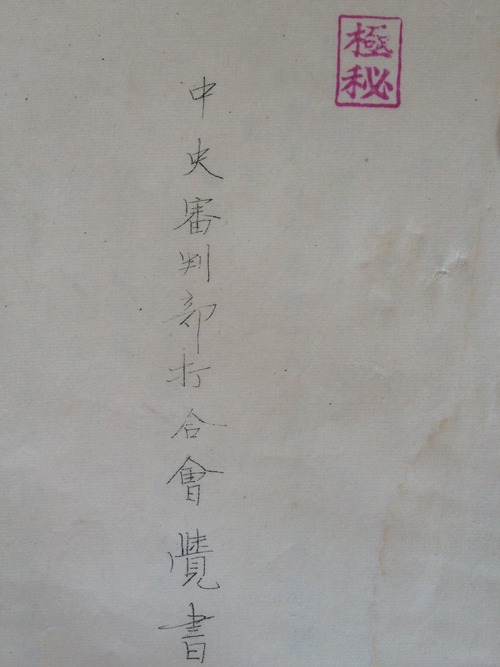 極秘
中央審判部打合會覺書